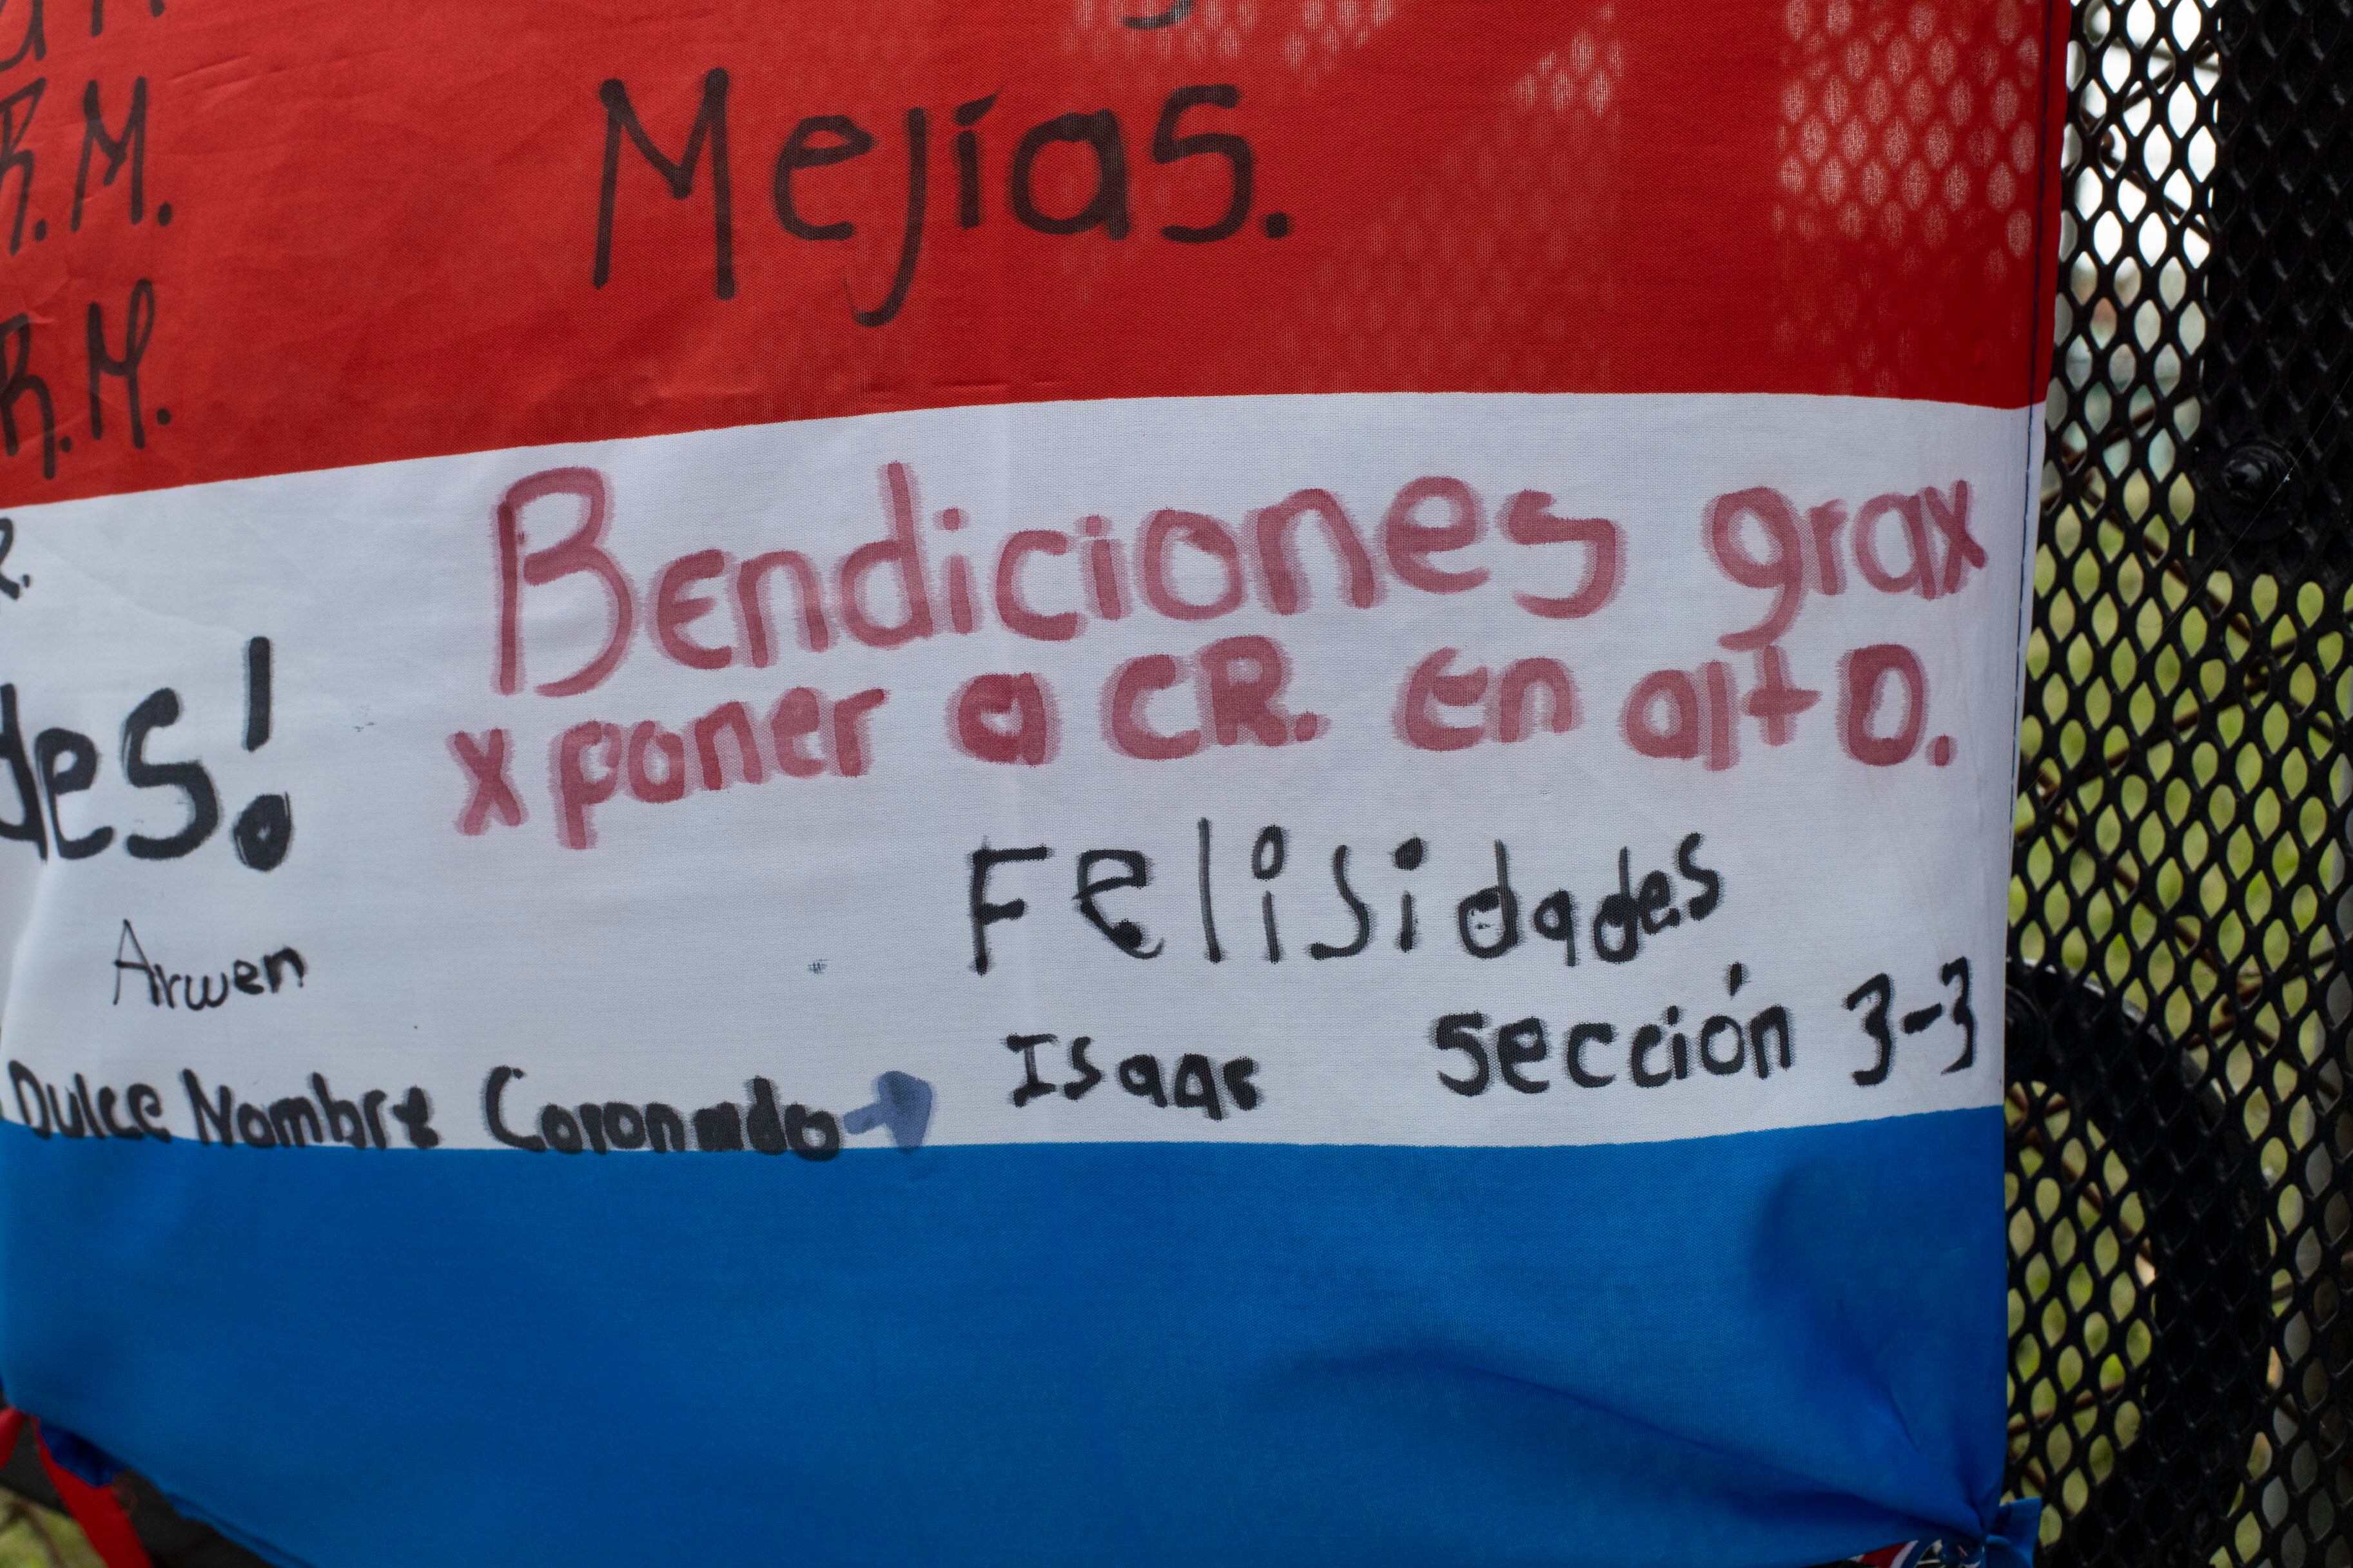 Mejías.
R.M.
R.M.
Bendiciones grax
x poner a CR. en alto.
des!
Felisidades
Arwen
Isaac sección 3-3
Dulce Nombre Coronado →